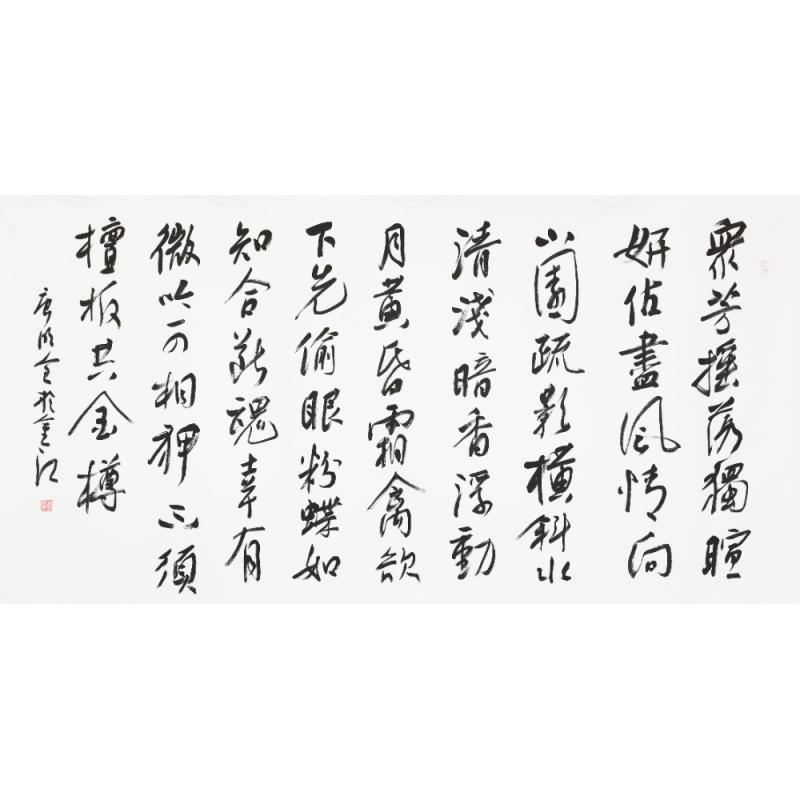 眾芳搖落獨暄
妍佔盡風情向
小園疏影橫斜水
清淺暗香浮動
月黃昏霜禽欲
下先偷眼粉蝶如
知合斷魂幸有
微吟可相狎不須
檀板共金樽
於重江